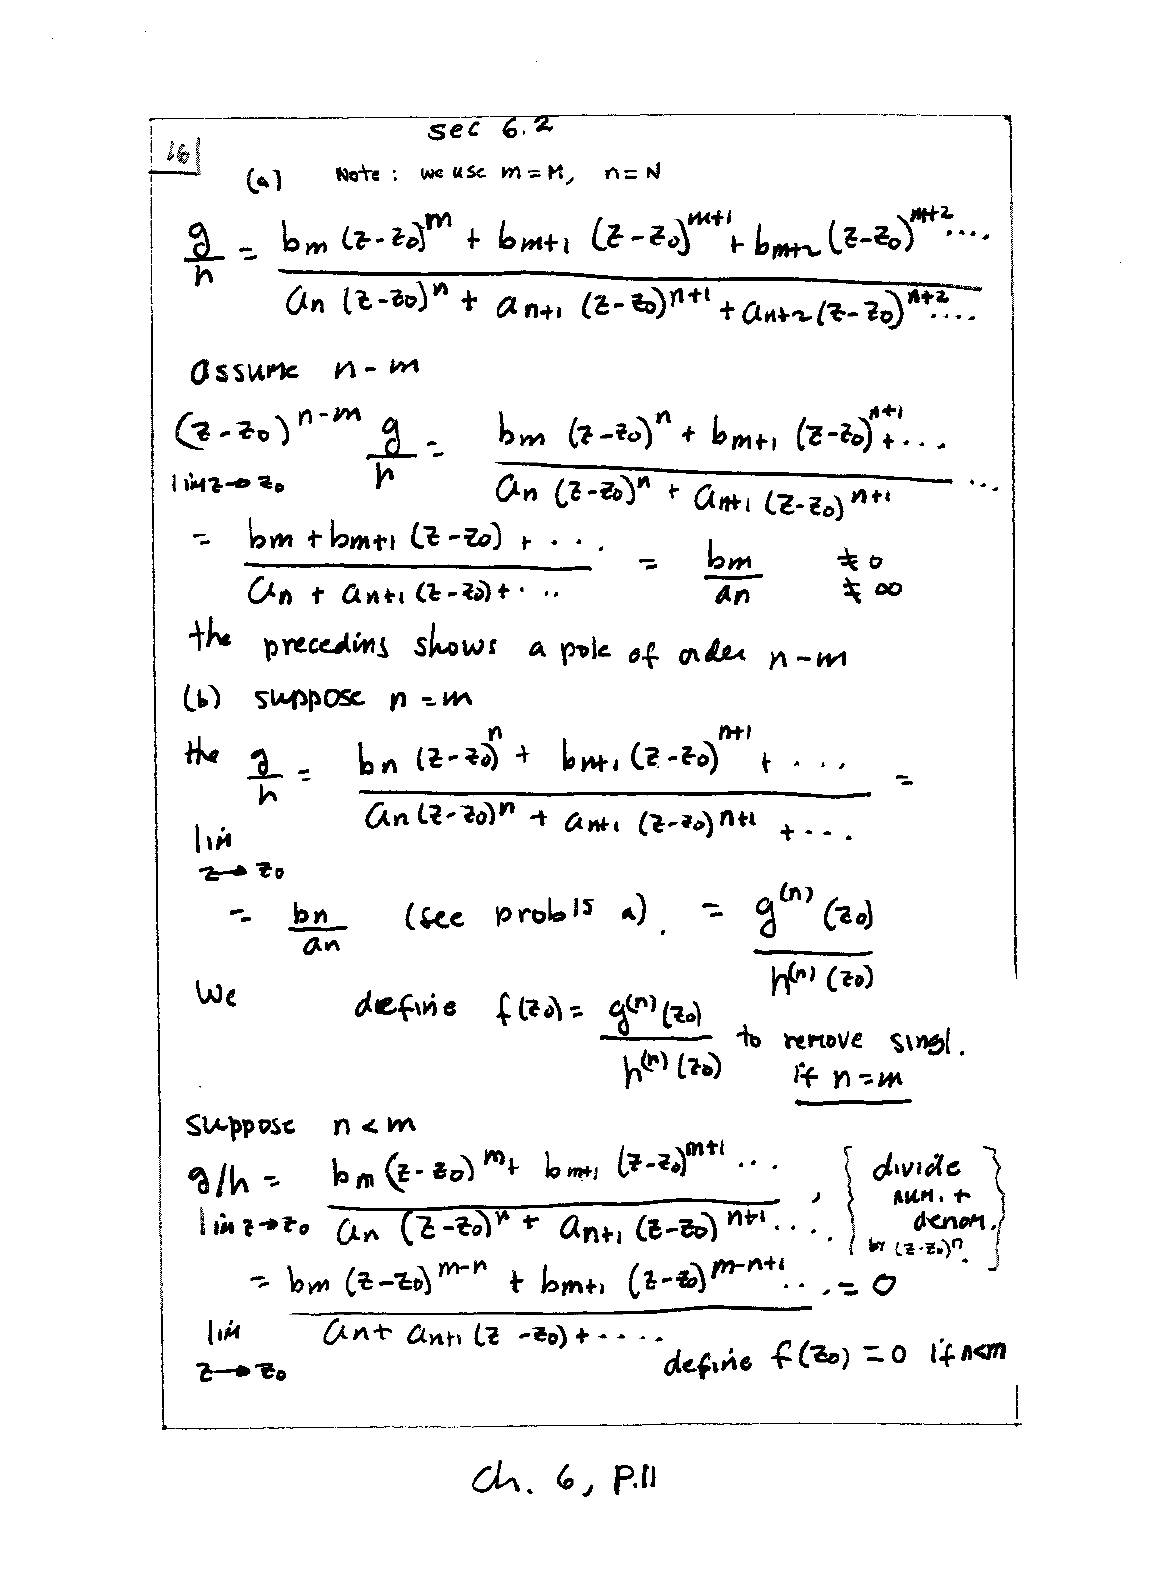 sec 6.2
16
(a) Note: we use m = M, n = N
g/h = bm (z-z0)^m + bm+1 (z-z0)^m+1 + bm+2 (z-z0)^m+2 ....
an (z-z0)^n + an+1 (z-z0)^n+1 + an+2 (z-z0)^n+2 ....
assume n - m
(z-z0)^n-m g/h = bm (z-z0)^n + bm+1 (z-z0)^n+1 + ...
lim z→z0 an (z-z0)^n + an+1 (z-z0)^n+1 ...
= bm + bm+1 (z-z0) + .... = bm/an ≠ 0
an + an+1 (z-z0) + ... ≠ ∞
the preceding shows a pole of order n-m
(b) suppose n = m
the g/h = bn (z-z0)^n + bn+1 (z-z0)^n+1 + .... =
lim z→z0 an (z-z0)^n + an+1 (z-z0)^n+1 + ....
= bn/an (see prob 15 a). = g^(n) (z0)/h^(n) (z0)
We define f(z0) = g^(n) (z0)/h^(n) (z0) to remove singl.
if n = m
suppose n < m
g/h = bm (z-z0)^m + bm+1 (z-z0)^m+1 ... , { divide
num. +
lim z→z0 an (z-z0)^n + an+1 (z-z0)^n+1 .... denom.
by (z-z0)^n. }
= bm (z-z0)^m-n + bm+1 (z-z0)^m-n+1 ... = 0
lim z→z0 an + an+1 (z-z0) + ....
define f(z0) = 0 if n<m
Ch. 6, P.11